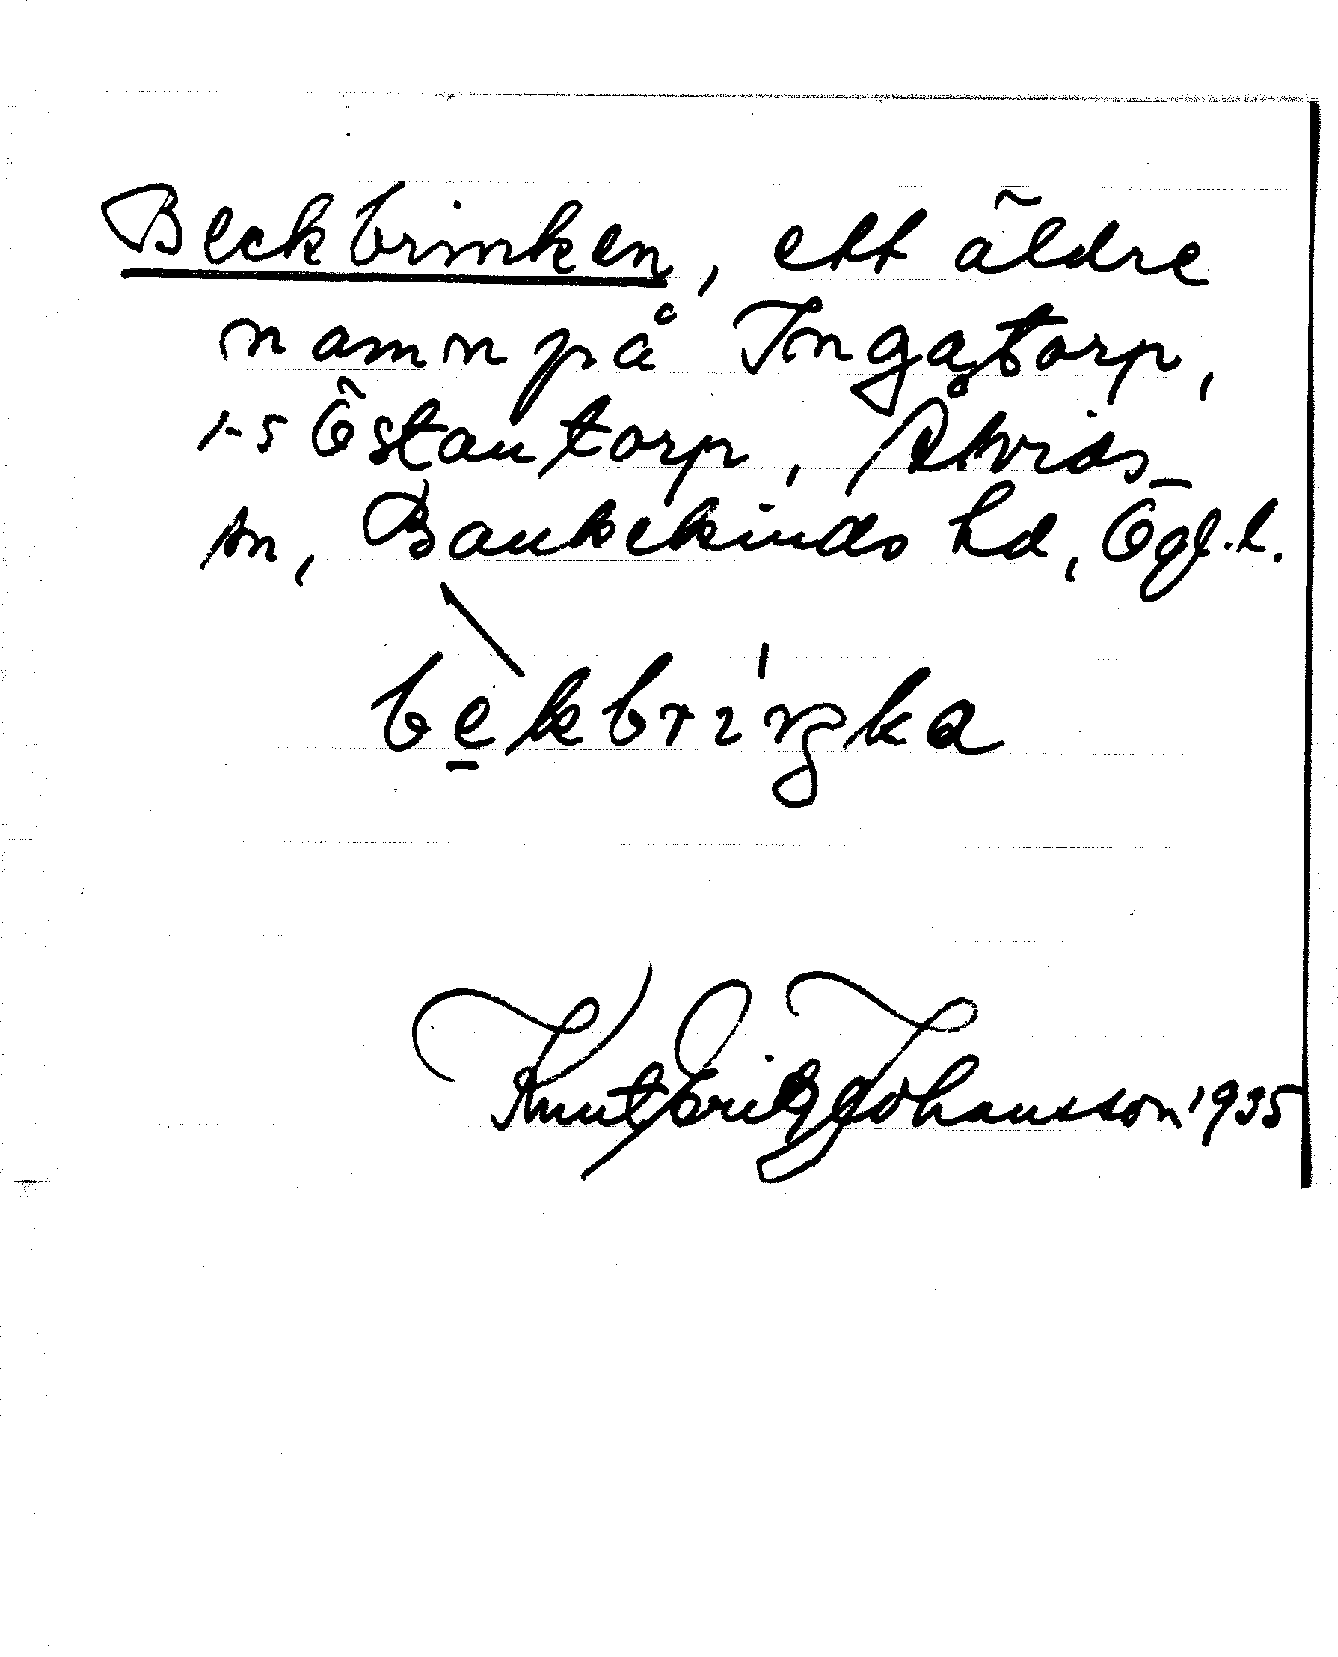 Beckbrinken, ett äldre
namn på Ingatorp,
1-5 Östantorp, Åtvids
sn, Bankekinds hd, Ögl.l.
bèkbrıŋka
Knut Eric Johansson 1935